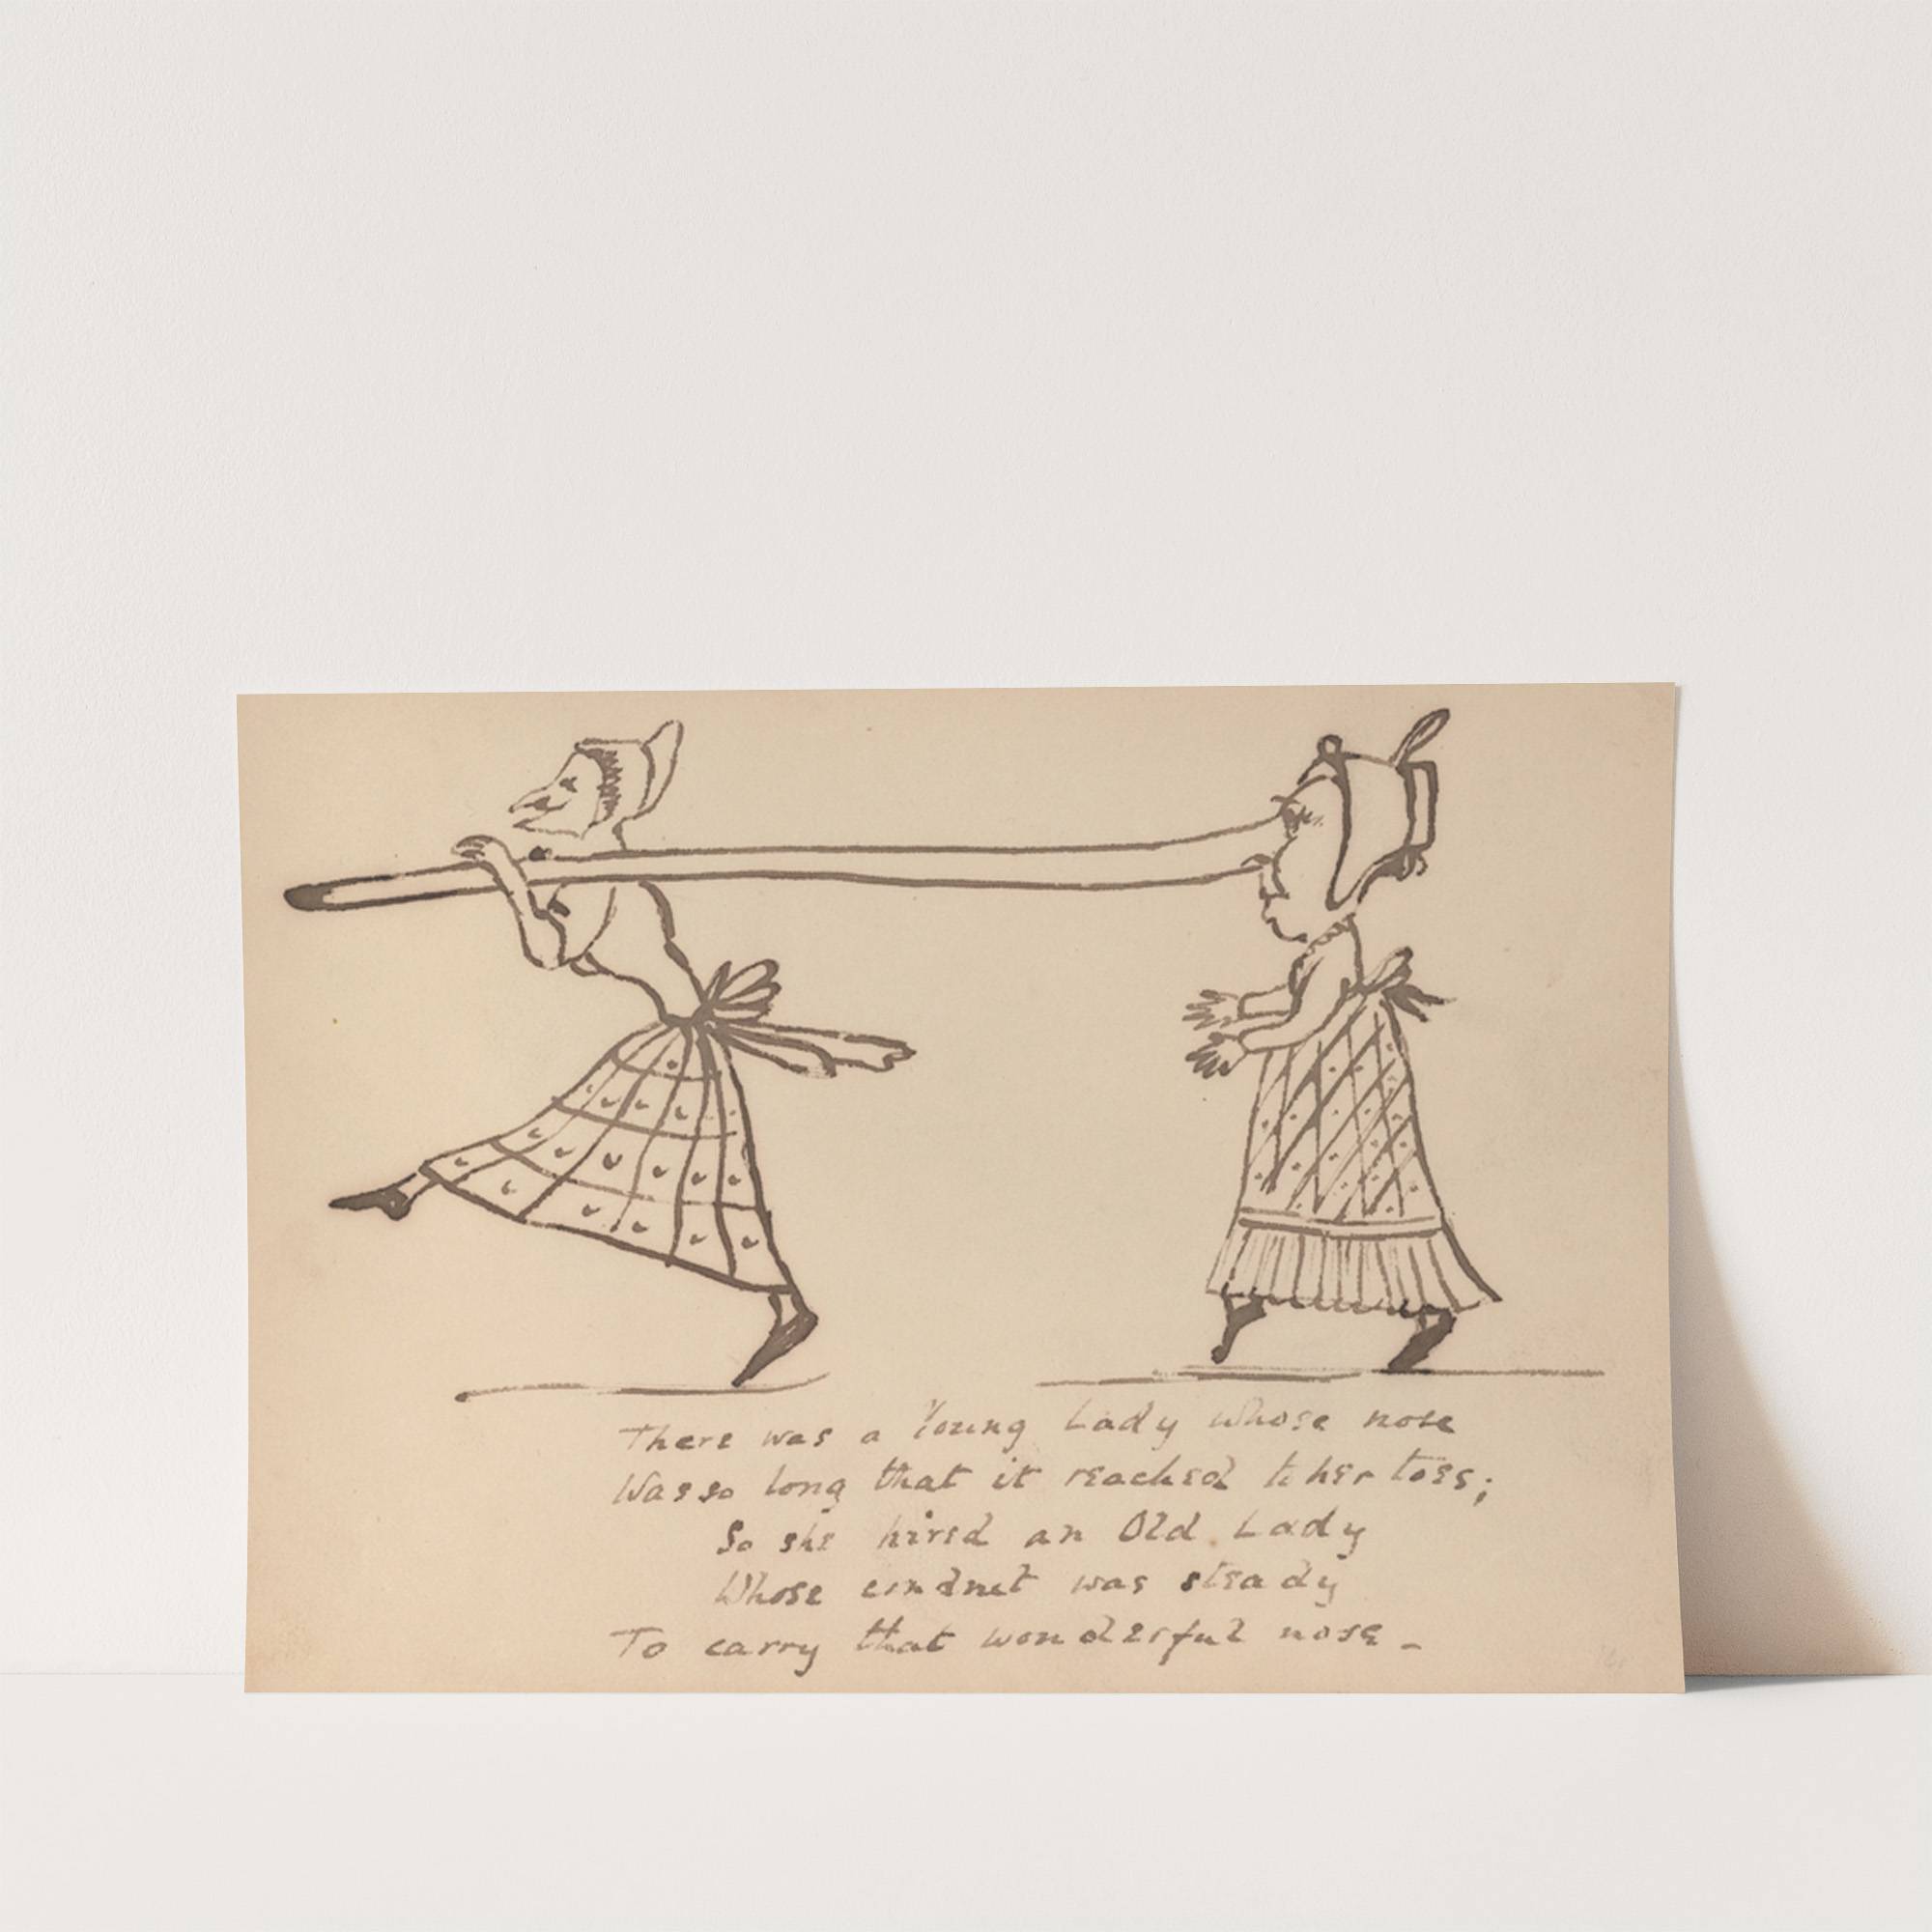 There was a Young Lady whose nose
Was so long that it reached to her toes;
So she hired an Old Lady
Whose conduct was steady
To carry that wonderful nose -